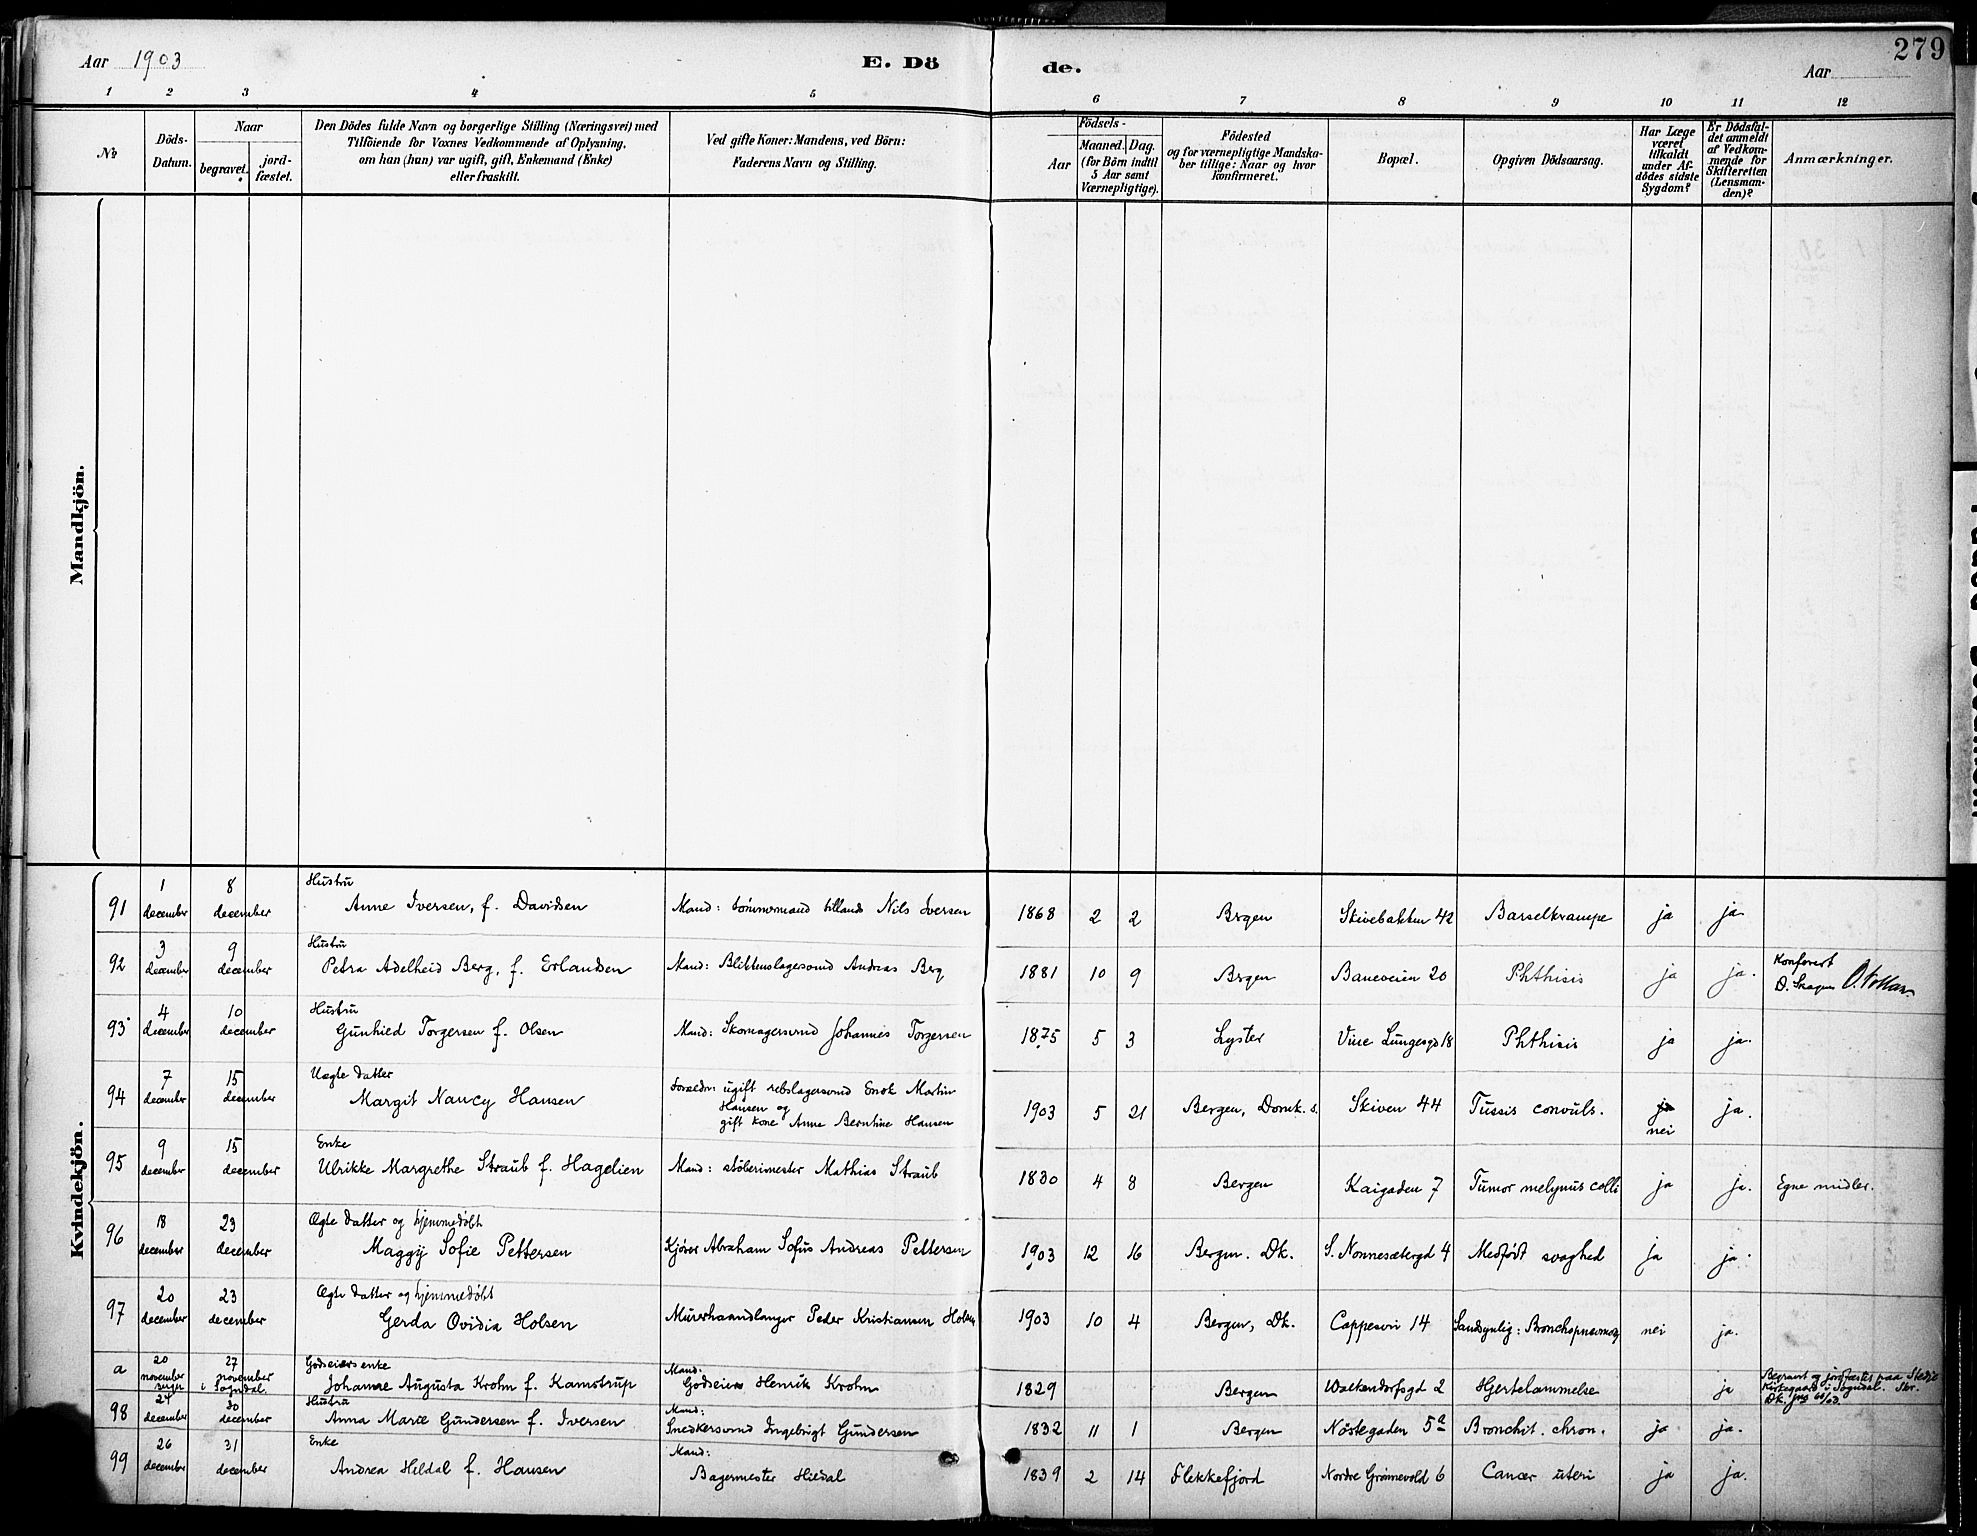 Aar 1903
E. Dö
de.
Aar
279
1 2 3 4 5 6 7 8 9 10 11 12
№
Döds-
Datum.
Naar
begravet.
jord-
fæstet.
Den Dödes fulde Navn og borgerlige Stilling (Næringsvei) med
Tilföiende for Voxnes Vedkommende af Oplysning,
om han (hun) var ugift, gift, Enkemand (Enke)
eller fraskilt.
Ved gifte Koner: Mandens, ved Börn:
Faderens Navn og Stilling.
Födsels-
Aar
Maaned. Dag.
(for Börn indtil
5 Aar samt
Værnepligtige).
Födested
og for værnepligtige Mandska-
ber tillige: Naar og hvor
konfirmeret.
Bopæl.
Opgiven Dödsaarsag.
Har Læge
været
tilkaldt
under Af-
dödes sidste
Sygdom?
Er Dödsfal-
det anmeldt
af Vedkom-
mende for
Skifteretten
(Lensman-
den)?
Anmærkninger.
Mandkjön.
Kvindekjön.
1 8 Hustru
91 december december Anne Iversen, f. Davidsen Mand: tömmermand Nils Iversen 1868 2 2 Brgen Skivebakken 42 Barselkrampe ja ja
3 9 Hustru
92 december december Petra Adelheid Berg, f. Erlandsen Mand: Andreas Berg 1881 10 9 Brgen Baneveien 20 Phthisis ja ja.
Konferert
4 10 Hustru
93 december december Gunhild Torgersen f. Olsen Mand: Skomagersvend Johannes Torgersen 1875 5 3 Lyster Vine Lungegd 18 Phthisis ja ja.
7 15 Uægte datter
94 december december Margit Nancy Hansen
Foreldre: ugift rebslagersvend Enok Martin
Hansen og
gift kone Anne Berntine Hansen
1903 5 21 Bergen, Domk. s. Skiven 44 Tussis convuls. ja
nei
ja.
9 15 Enke
95 december december Ulrikke Margrethe Straub f. Hagelien Mand: støberimester Mathias Straub 1830 4 8 Bergen Kaigaden 7 Tumor colli ja ja. Egne midler.
18 23 Ægte datter og hjemmedøbt
96 december december Maggij Sofie Pettersen Kjører Abraham Sofus Andreas Pettersen 1903 12 16 Bergen. Dk. S. Nonnesætergd 4 Medfødt svaghed ja ja.
20 23 Ægte datter og hjemmedøbt
97 december december Gerda Ovidia Holsen Murerhaandlanger Peder Kristiansen Holsen 1903 10 4 Bergen, Dk. Cappesvei 14 Sandsynlig: Bronchopneumoni nei ja.
20 27 Godseiers enke Mand:
a november november
i Sogndal.
Johanne Augusta Krohn f. Kamstrup Godseier Henrik Krohn 1829 Bergen Walkendorfsgd 2 Hjertelammelse ja
Begravet og jordfæstet paa Stedje
Kirkegaard i Sogndal.
27 30 Hustru Mand:
98 december december Anna Marie Gundersen f. Iversen Snedkersvend Ingebrigt Gundersen 1832 11 1 Bergen Nöstegaden 5a Bronchit. chron. ja ja.
26 31 Enke Mand:
99 december december Andrea Hildal f. Hansen Bagermester Hildal 1839 2 14 Flekkefjord Nordre Grönnevold 6 Cancer uteri ja ja.